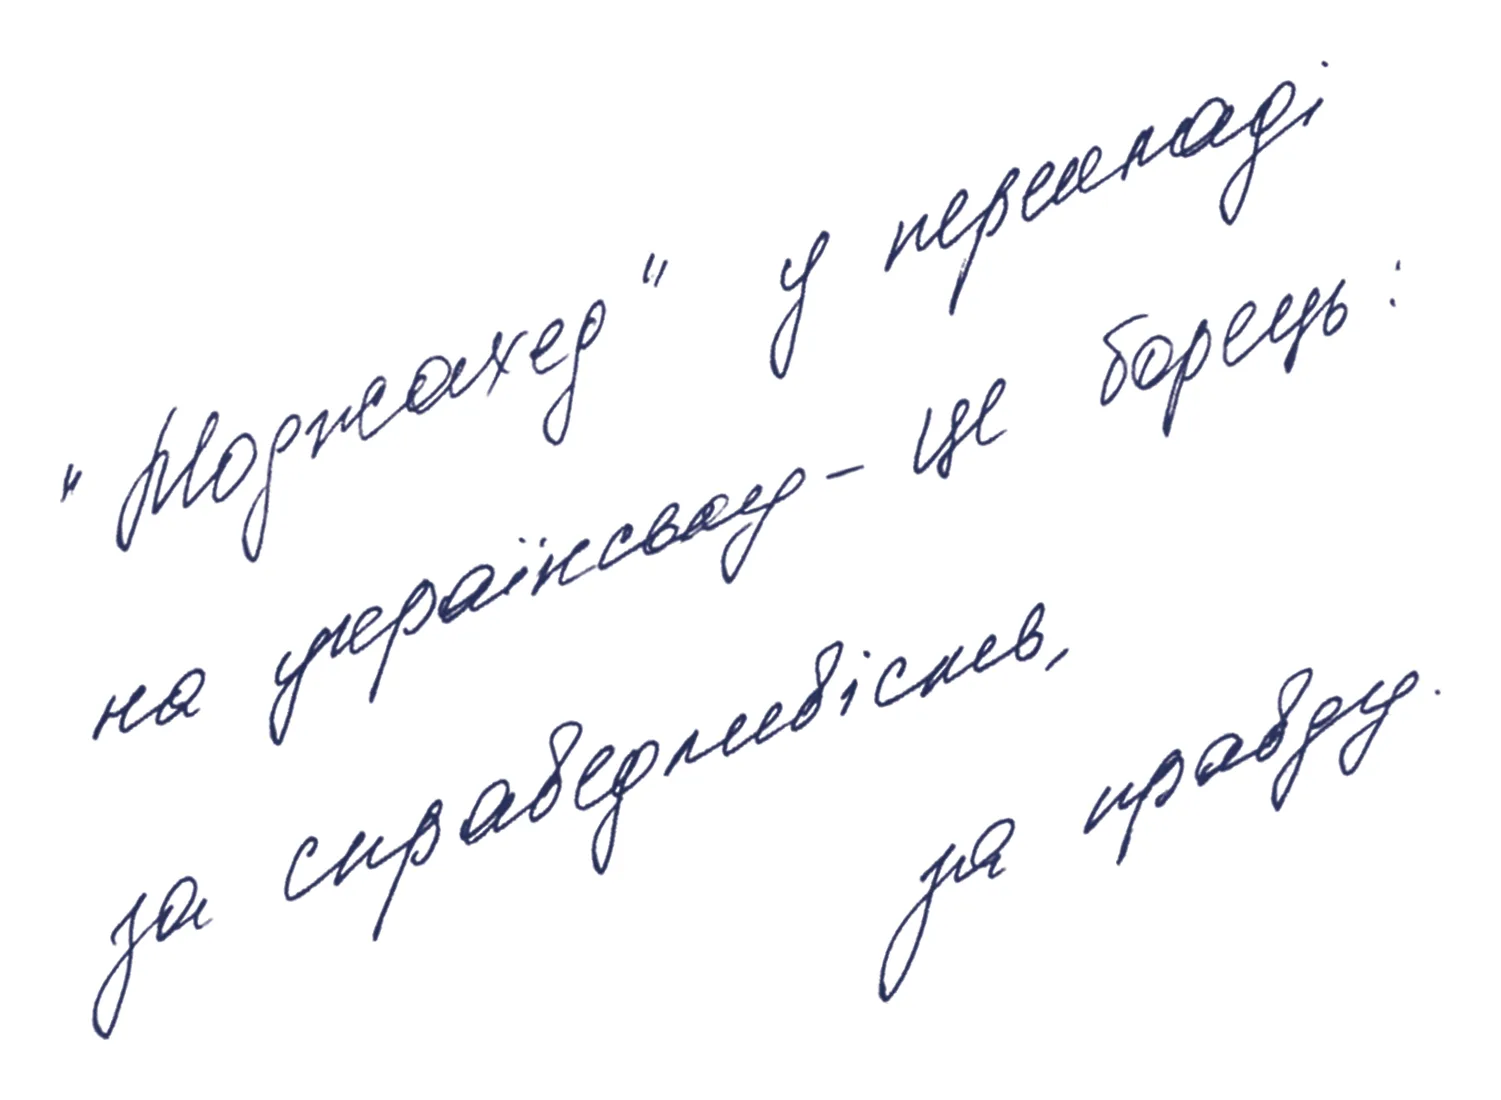 "Моджахед" у перекладі
на українську – це борець:
за справедливість,
за правду.